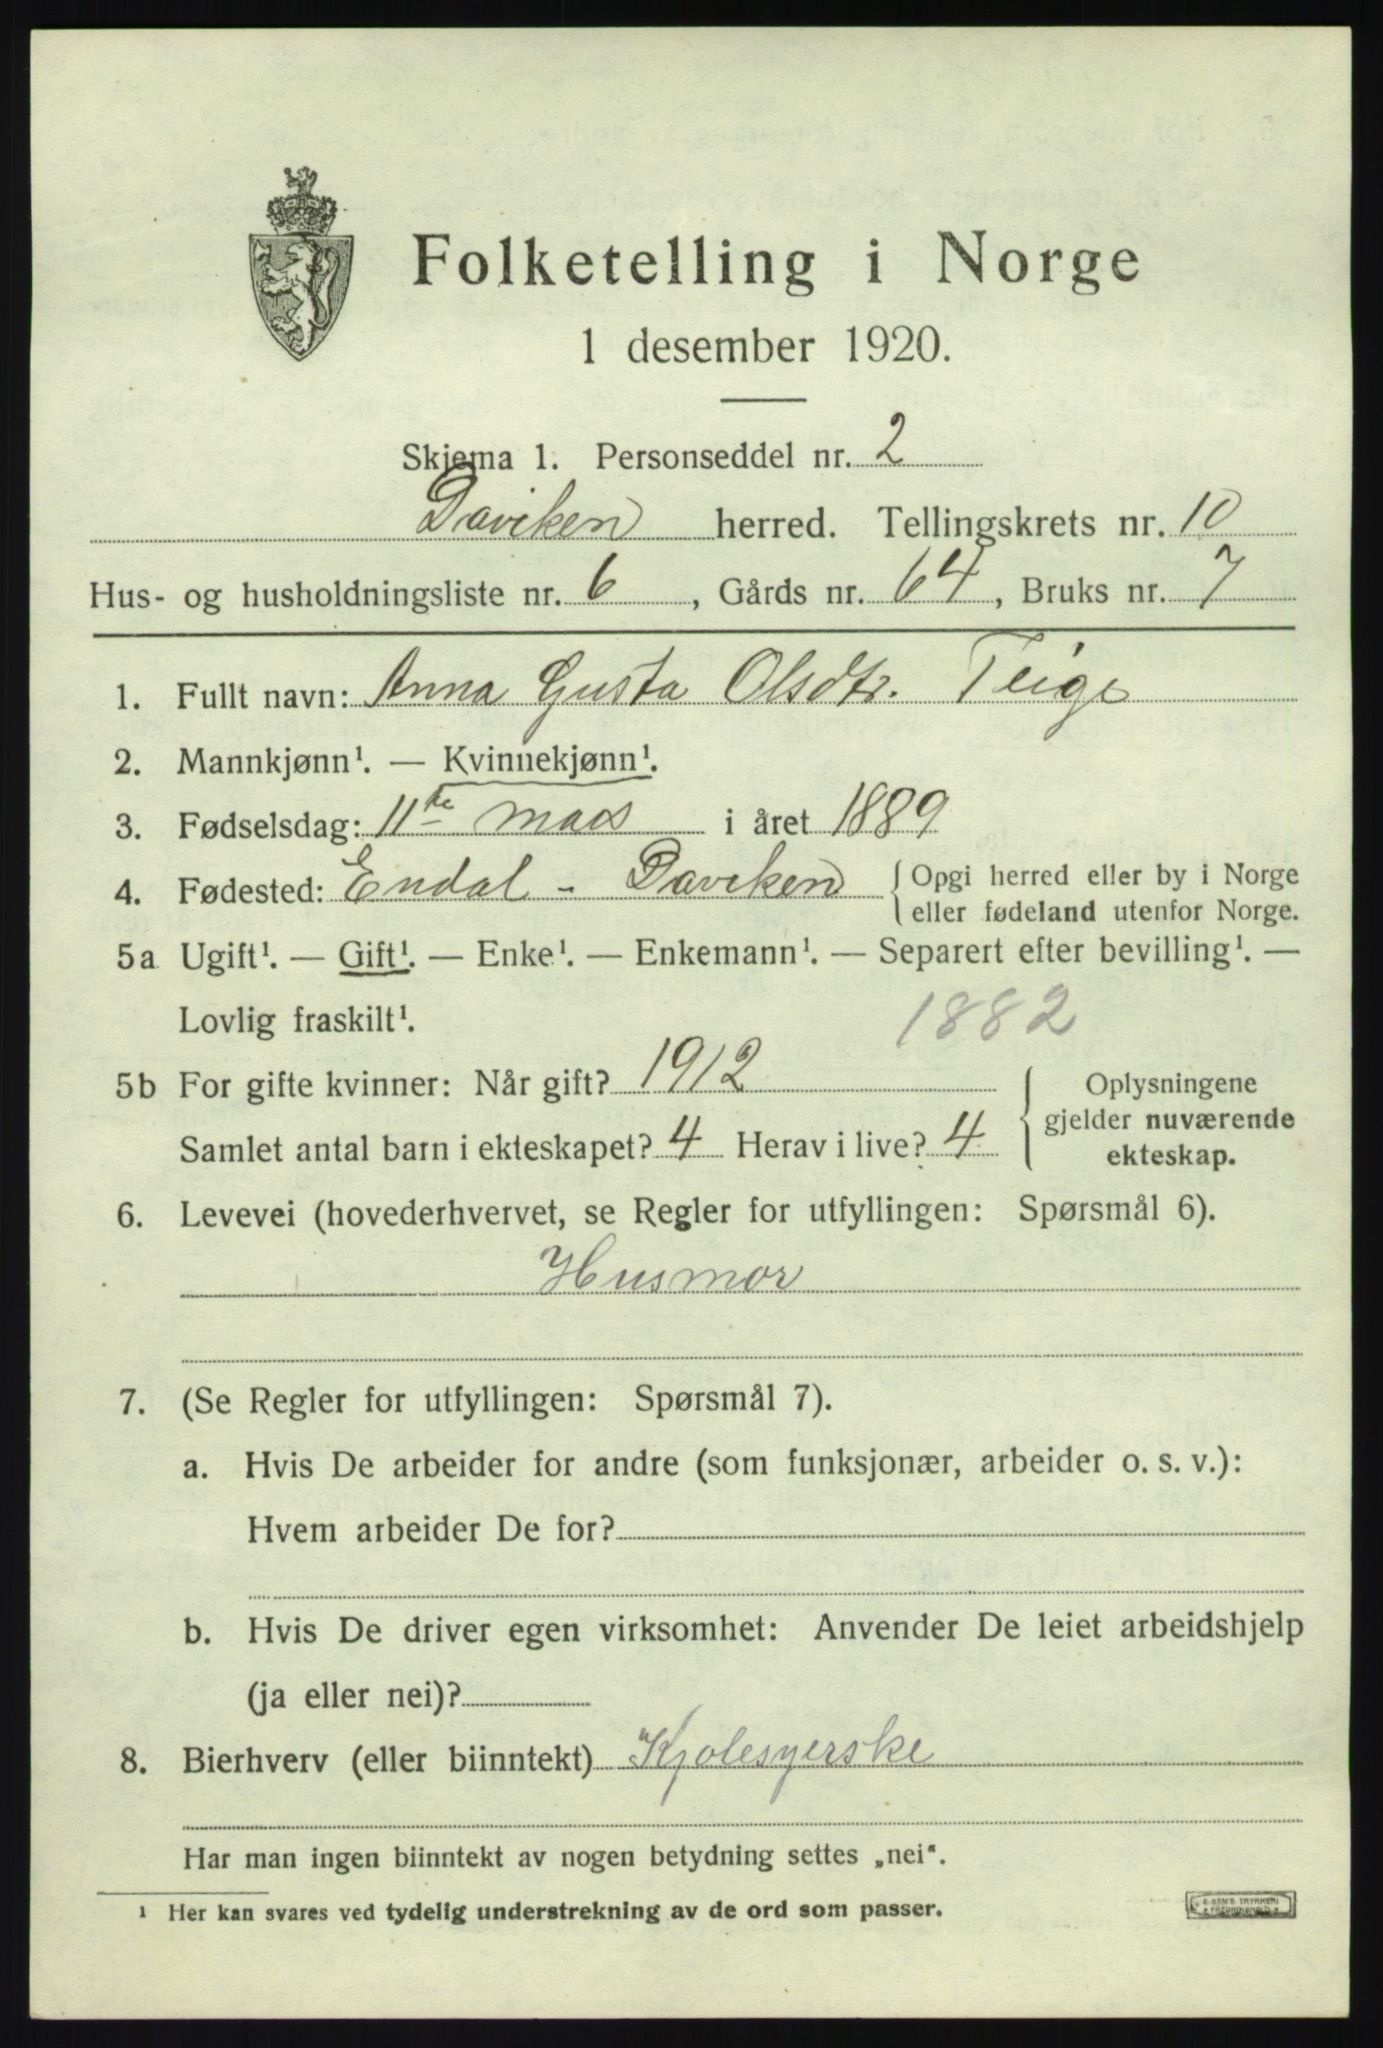 Folketelling i Norge
1 desember 1920.
Skjema 1. Personseddel nr. 2
Daviken herred. Tellingskrets nr. 10
Hus- og husholdningsliste nr. 6, Gårds nr. 64, Bruks nr. 7
1. Fullt navn: Anna Gusta Olsdtr. Teige
2. Mannkjønn¹. — Kvinnekjønn¹.
3. Fødselsdag: 11te mars i året 1889
4. Fødested: Endal - Daviken { Opgi herred eller by i Norge
eller fødeland utenfor Norge.
5a Ugift¹. — Gift¹. — Enke¹. — Enkemann¹. — Separert efter bevilling¹. —
Lovlig fraskilt¹. 1882
5b For gifte kvinner: Når gift? 1912
Samlet antal barn i ekteskapet? 4 Herav i live? 4
{ Oplysningene
gjelder nuværende
ekteskap.
6. Levevei (hovederhvervet, se Regler for utfyllingen: Spørsmål 6).
Husmor
7. (Se Regler for utfyllingen: Spørsmål 7).
a. Hvis De arbeider for andre (som funksjonær, arbeider o. s. v.):
Hvem arbeider De for?
b. Hvis De driver egen virksomhet: Anvender De leiet arbeidshjelp
(ja eller nei)?
8. Bierhverv (eller biinntekt) Kjolesyerske
Har man ingen biinntekt av nogen betydning settes „nei“.
¹ Her kan svares ved tydelig understrekning av de ord som passer.